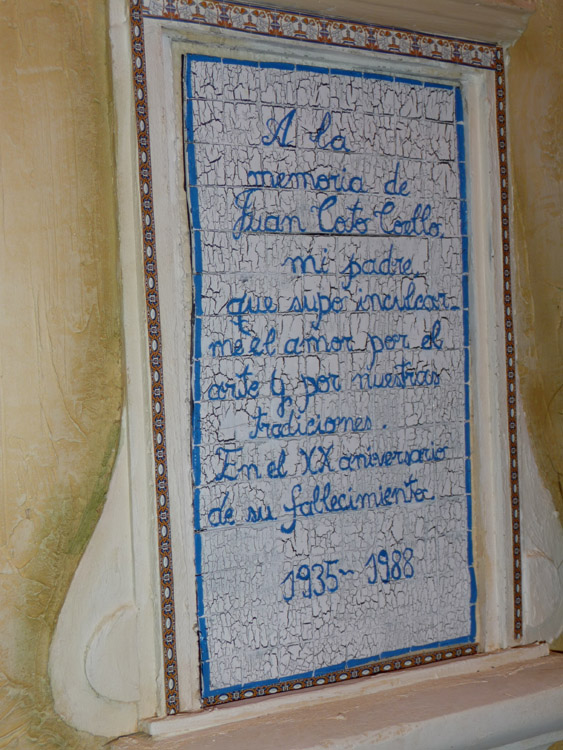 A la
memoria de
Juan Coto Coello,
mi padre,
que supo inculcar-
me el amor por el
arte y por nuestras
tradiciones.
En el XX aniversario
de su fallecimiento
1935- 1988